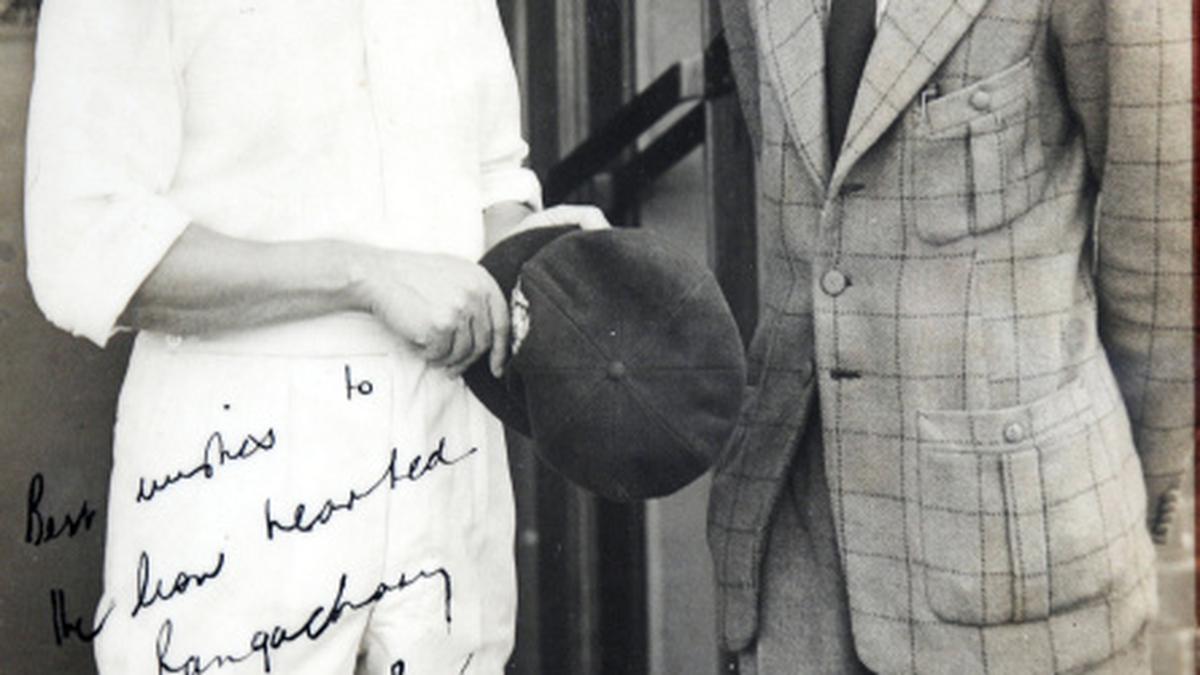 Best wishes to
the lion hearted
Rangachary